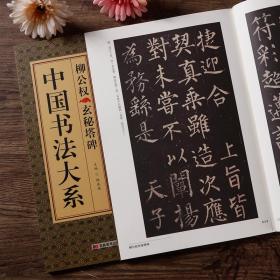 符彩
捷迎合上旨皆
契真乘雖造次應
對未嘗不以闡揚
為務繇是天子
柳公权 玄秘塔碑
中国书法大系